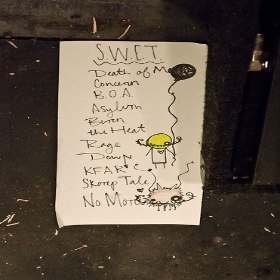 S.W.E.T.
Death of M
Concern
B.O.A.
Asylum
Burn
the Heat
Rage
Down
KFAR
Skorep Tale
No More